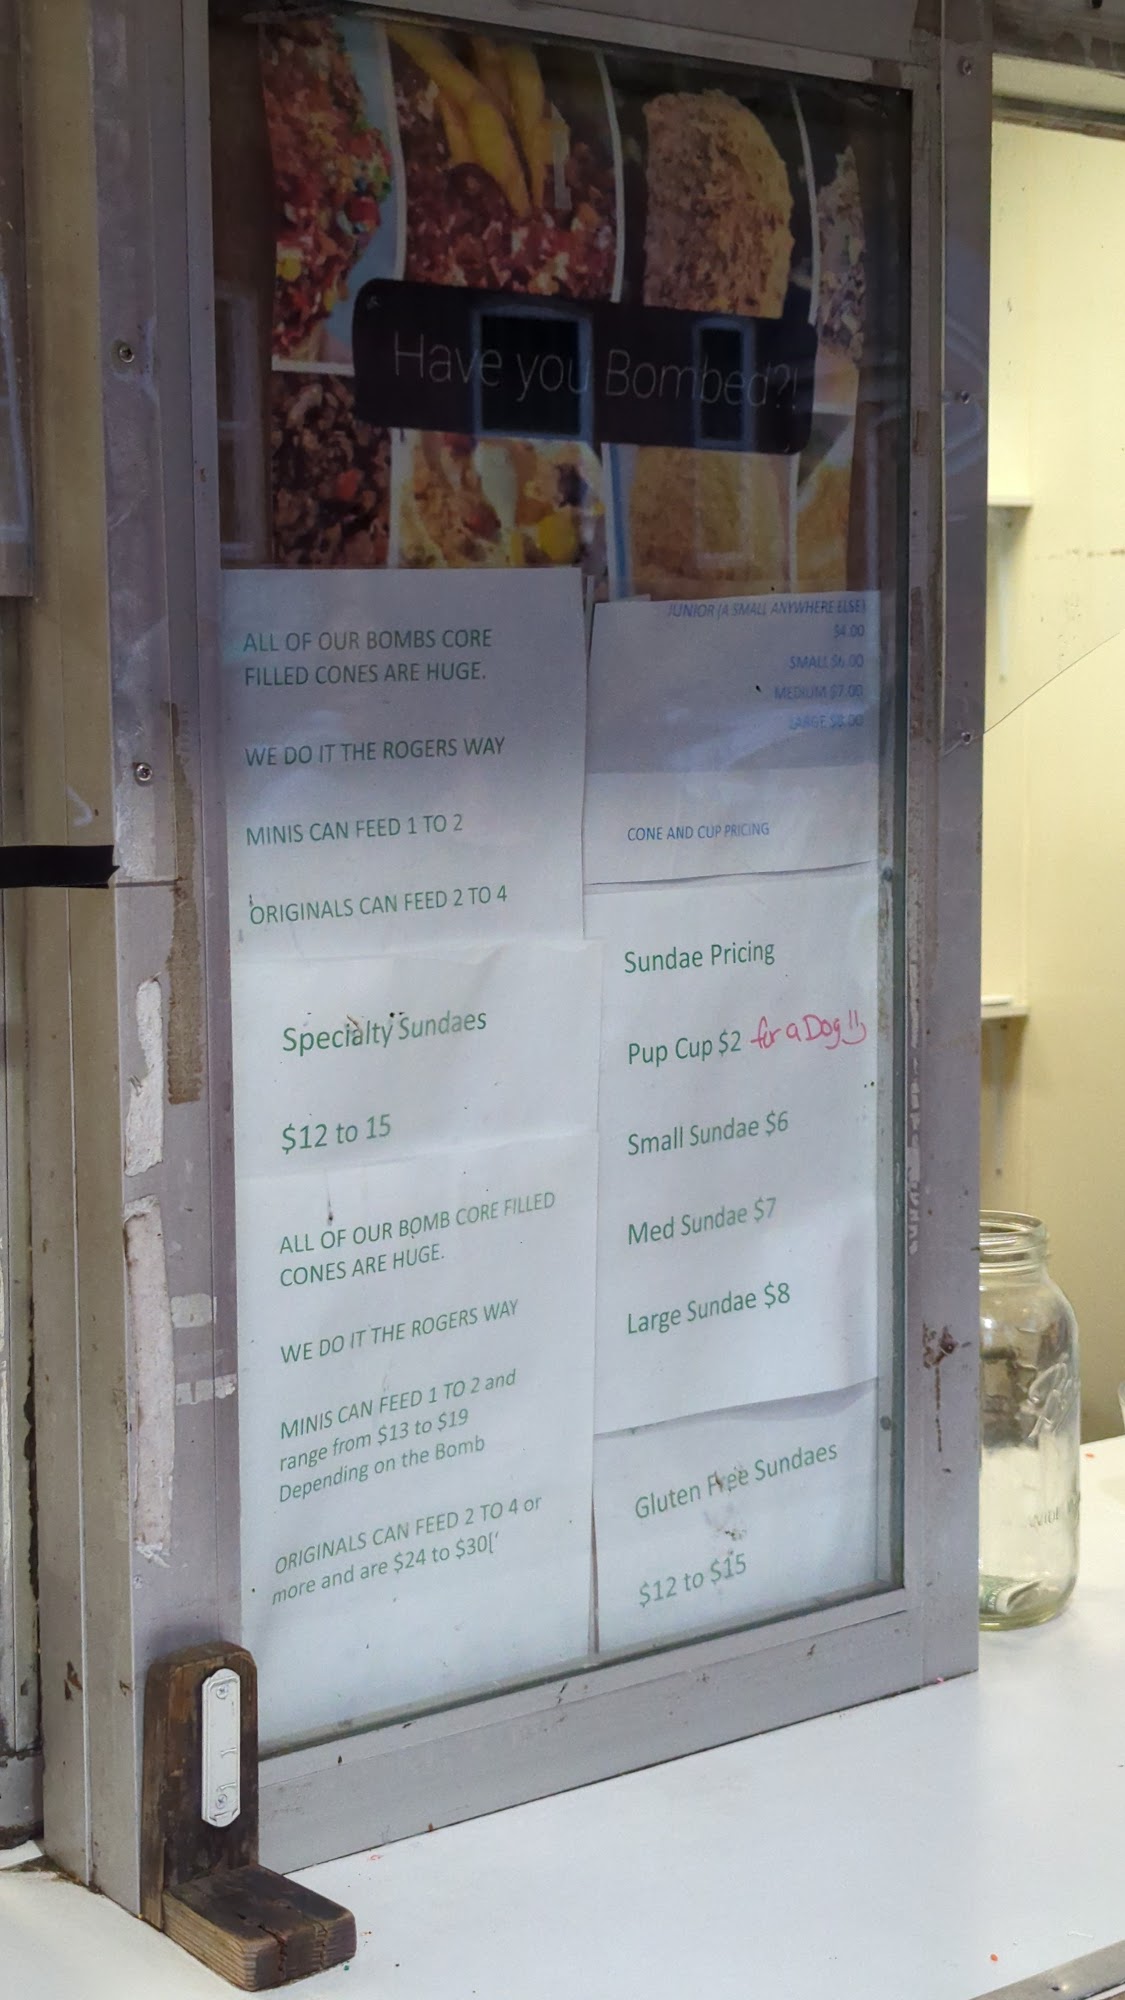 Have you Bombed?!
ALL OF OUR BOMBS CORE
FILLED CONES ARE HUGE.
WE DO IT THE ROGERS WAY
MINIS CAN FEED 1 TO 2
ORIGINALS CAN FEED 2 TO 4
Specialty Sundaes
$12 to 15
ALL OF OUR BOMB CORE FILLED
CONES ARE HUGE.
WE DO IT THE ROGERS WAY
MINIS CAN FEED 1 TO 2 and
range from $13 to $19
Depending on the Bomb
ORIGINALS CAN FEED 2 TO 4 or
more and are $24 to $30['
JUNIOR (A SMALL ANYWHERE ELSE)
$4.00
SMALL $6.00
MEDIUM $7.00
LARGE $8.00
CONE AND CUP PRICING
Sundae Pricing
Pup Cup $2 for a Dog!!
Small Sundae $6
Med Sundae $7
Large Sundae $8
Gluten Free Sundaes
$12 to $15